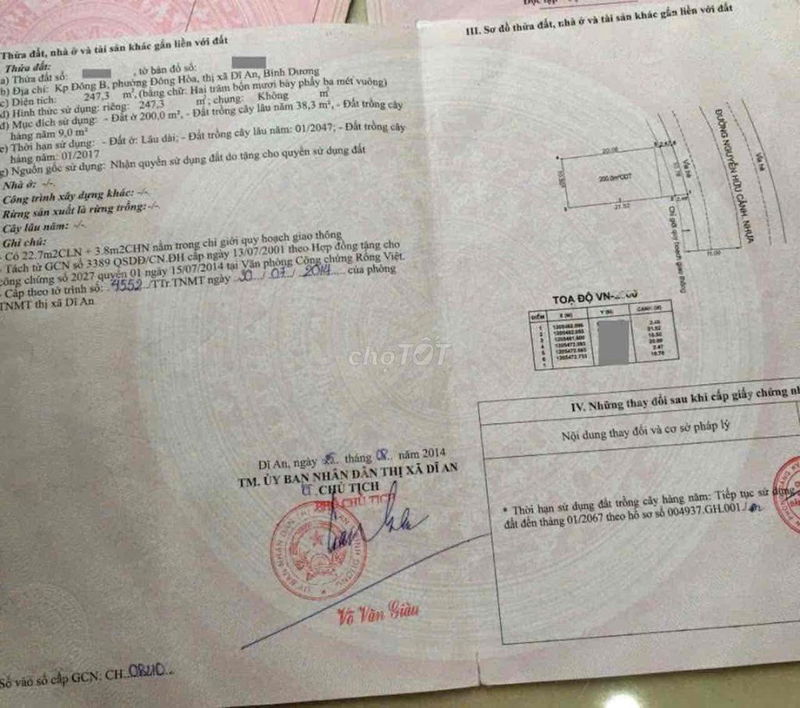 Thửa đất, nhà ở và tài sản khác gắn liền với đất
Thửa đất:
a) Thửa đất số: , tờ bản đồ số:
b) Địa chỉ: Kp Đông B, phường Đông Hòa, thị xã Dĩ An, Bình Dương
c) Diện tích: 247,3 m², (bằng chữ: Hai trăm bốn mươi bảy phẩy ba mét vuông)
d) Hình thức sử dụng: riêng: 247,3 m², chung: Không m²
đ) Mục đích sử dụng: - Đất ở 200,0 m², - Đất trồng cây lâu năm 38,3 m², - Đất trồng cây
hàng năm 9,0 m²
e) Thời hạn sử dụng: - Đất ở: Lâu dài; - Đất trồng cây lâu năm: 01/2047; - Đất trồng cây
hàng năm: 01/2017
g) Nguồn gốc sử dụng: Nhận quyền sử dụng đất do tặng cho quyền sử dụng đất
Nhà ở: -/-
Công trình xây dựng khác: -/-
Rừng sản xuất là rừng trồng: -/-
Cây lâu năm: -/-
Ghi chú:
- Có 22.7m2CLN + 3.8m2CHN nằm trong chỉ giới quy hoạch giao thông
- Tách từ GCN số 3389 QSDĐ/CN.ĐH cấp ngày 13/07/2001 theo Hợp đồng tặng cho
công chứng số 2027 quyển 01 ngày 15/07/2014 tại Văn phòng Công chứng Rồng Việt.
- Cấp theo tờ trình số: 4552/TTr.TNMT ngày 30/07/2014 của phòng
TNMT thị xã Dĩ An
Dĩ An, ngày tháng 08 năm 2014
TM. ỦY BAN NHÂN DÂN THỊ XÃ DĨ AN
KT CHỦ TỊCH
PHÓ CHỦ TỊCH
Võ Văn Giàu
Số vào sổ cấp GCN: CH
III. Sơ đồ thửa đất, nhà ở và tài sản khác gắn liền với đất
ĐƯỜNG NGUYỄN HỮU CẢNH, NHỰA
Vỉa hè
Vỉa hè
Chỉ giới quy hoạch giao thông
20.08
21.52
11.00
TOẠ ĐỘ VN-
ĐIỂM X (M) Y (M) CẠNH (M)
chợTỐT
IV. Những thay đổi sau khi cấp giấy chứng nh
Nội dung thay đổi và cơ sở pháp lý
* Thời hạn sử dụng đất trồng cây hàng năm: Tiếp tục sử dụng
đất đến tháng 01/2067 theo hồ sơ số 004937.GH.001